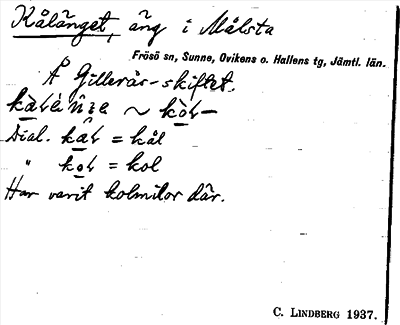 Kålänget, äng i Målsta
Frösö sn, Sunne, Ovikens o. Hallens tg, Jämtl. län.
Å Gillerås-skiftet.
~
Dial. = kål
" = kol
Har varit kolmilor där.
C. LINDBERG 1937.